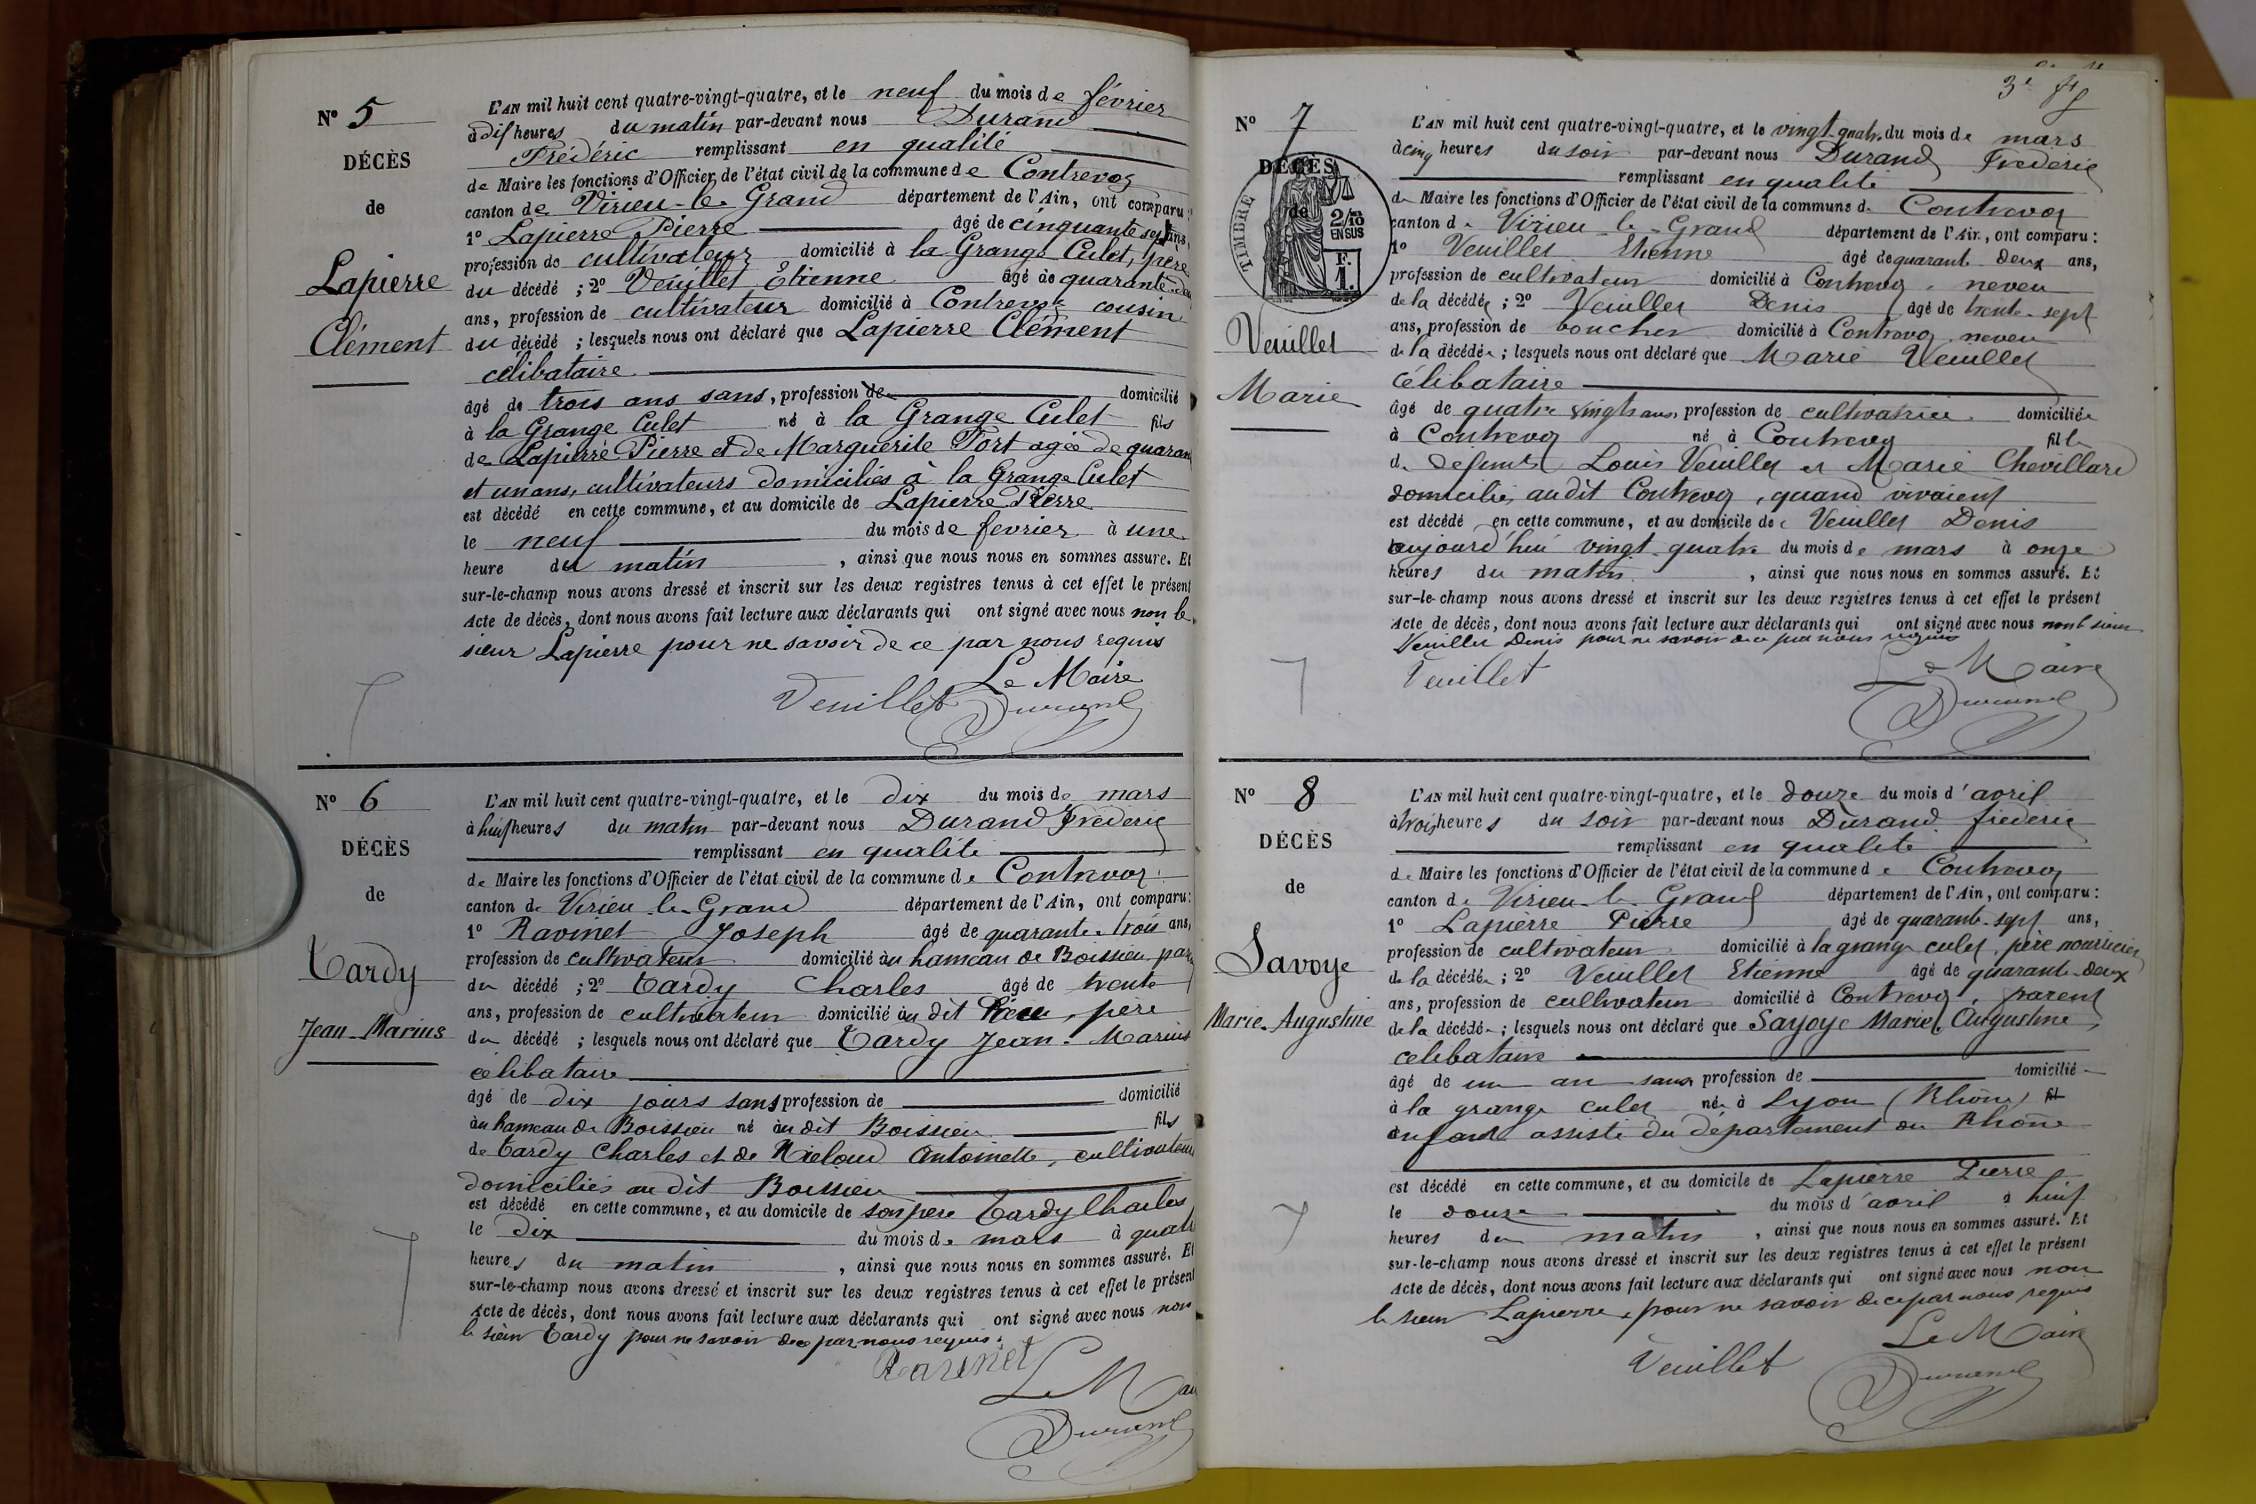 N° 5
DÉCÈS
de
Lapierre
Clément
L'AN mil huit cent quatre-vingt-quatre, et le neuf du mois de février
à dix heures du matin par-devant nous Durand
Frédéric remplissant en qualité
de Maire les fonctions d'Officier de l'état civil de la commune de Contrevoz
canton de Virieu-le-Grand département de l'Ain, ont comparu :
1° Lapierre Pierre âgé de cinquante sept ans,
profession de cultivateur domicilié à la Grange Culet, père
du décédé ; 2° Veuillet Etienne âgé de quarante-deux
ans, profession de cultivateur domicilié à Contrevoz cousin
du décédé ; lesquels nous ont déclaré que Lapierre Clément
célibataire
âgé de trois ans sans, profession de domicilié
à la Grange Culet né à la Grange Culet fils
de Lapierre Pierre et de Marguerite Fort agée de quarante
et un ans, cultivateurs domiciliés à la Grange Culet
est décédé en cette commune, et au domicile de Lapierre Pierre
le neuf du mois de fevrier à une
heure du matin, ainsi que nous nous en sommes assuré. Et
sur-le-champ nous avons dressé et inscrit sur les deux registres tenus à cet effet le présent
Acte de décès, dont nous avons fait lecture aux déclarants qui ont signé avec nous non le
sieur Lapierre pour ne savoir de ce par nous requis
Le Maire
Veuillet Durand
N° 6
DÉCÈS
de
Tardy
Jean-Marius
L'AN mil huit cent quatre-vingt-quatre, et le dix du mois de mars
à huit heures du matin par-devant nous Durand Frederic
remplissant en qualité
de Maire les fonctions d'Officier de l'état civil de la commune de Contrevoz
canton de Virieu-le-Grand département de l'Ain, ont comparu :
1° Ravinet Joseph âgé de quarante-trois ans,
profession de cultivateur domicilié au hameau de Boissieu,
du décédé ; 2° Tardy Charles âgé de trente
ans, profession de cultivateur domicilié au dit lieu, père
du décédé ; lesquels nous ont déclaré que Tardy Jean-Marius
célibataire
âgé de dix jours sans profession de domicilié
au hameau de Boissieu né au dit Boissieu fils
de Tardy Charles et de Antoinette, cultivateurs
domiciliés au dit Boissieu
est décédé en cette commune, et au domicile de son père Tardy Charles
le dix du mois de mars à quatre
heures du matin, ainsi que nous nous en sommes assuré. Et
sur-le-champ nous avons dressé et inscrit sur les deux registres tenus à cet effet le présent
Acte de décès, dont nous avons fait lecture aux déclarants qui ont signé avec nous non
le sieur Tardy pour ne savoir de ce par nous requis.
Ravinet
Le Maire
Durand
3e
N° 7
DÉCÈS
de
TIMBRE
2/10
EN SUS
F.
1.
Veuillet
Marie
L'AN mil huit cent quatre-vingt-quatre, et le vingt-quatre du mois de mars
à cinq heures du soir par-devant nous Durand Frederic
remplissant en qualité
de Maire les fonctions d'Officier de l'état civil de la commune de Contrevoz
canton de Virieu-le-Grand département de l'Ain, ont comparu :
1° Veuillet Etienne âgé de quarante deux ans,
profession de cultivateur domicilié à Contrevoz, neveu
de la décédée ; 2° Veuillet Denis âgé de trente-sept
ans, profession de boucher domicilié à Contrevoz neveu
de la décédée ; lesquels nous ont déclaré que Marie Veuillet
célibataire
âgé de quatre vingt ans, profession de cultivatrice domiciliée
à Contrevoz né à Contrevoz fille
de defunts Louis Veuillet et Marie Chevillard
domiciliés audit Contrevoz, quand vivaient
est décédé en cette commune, et au domicile de Veuillet Denis
aujourd'hui vingt-quatre du mois de mars à onze
heures du matin, ainsi que nous nous en sommes assuré. Et
sur-le-champ nous avons dressé et inscrit sur les deux registres tenus à cet effet le présent
Acte de décès, dont nous avons fait lecture aux déclarants qui ont signé avec nous non le sieur
Veuillet Denis pour ne savoir de ce par nous requis
Le Maire
Veuillet Durand
N° 8
DÉCÈS
de
Savoye
Marie-Augustine
L'AN mil huit cent quatre-vingt-quatre, et le douze du mois d'avril
à trois heures du soir par-devant nous Durand fréderic
remplissant en qualité
de Maire les fonctions d'Officier de l'état civil de la commune de Contrevoz
canton de Virieu-le-Grand département de l'Ain, ont comparu :
1° Lapierre Pierre âgé de quarante-sept ans,
profession de cultivateur domicilié à la grange culet, père nourricier
de la décédée ; 2° Veuillet Etienne âgé de quarante-deux
ans, profession de cultivateur domicilié à Contrevoz, parent
de la décédée ; lesquels nous ont déclaré que Savoye Marie Augustine,
célibataire
âgé de un an sans profession de domicilié
à la grange culet née à Lyon (Rhône) fil
enfant assisté du département du Rhône
est décédé en cette commune, et au domicile de Lapierre Pierre
le douze du mois d'avril à huit
heures du matin, ainsi que nous nous en sommes assuré. Et
sur-le-champ nous avons dressé et inscrit sur les deux registres tenus à cet effet le présent
Acte de décès, dont nous avons fait lecture aux déclarants qui ont signé avec nous non
le sieur Lapierre, pour ne savoir de ce par nous requis
Le Maire
Veuillet Durand